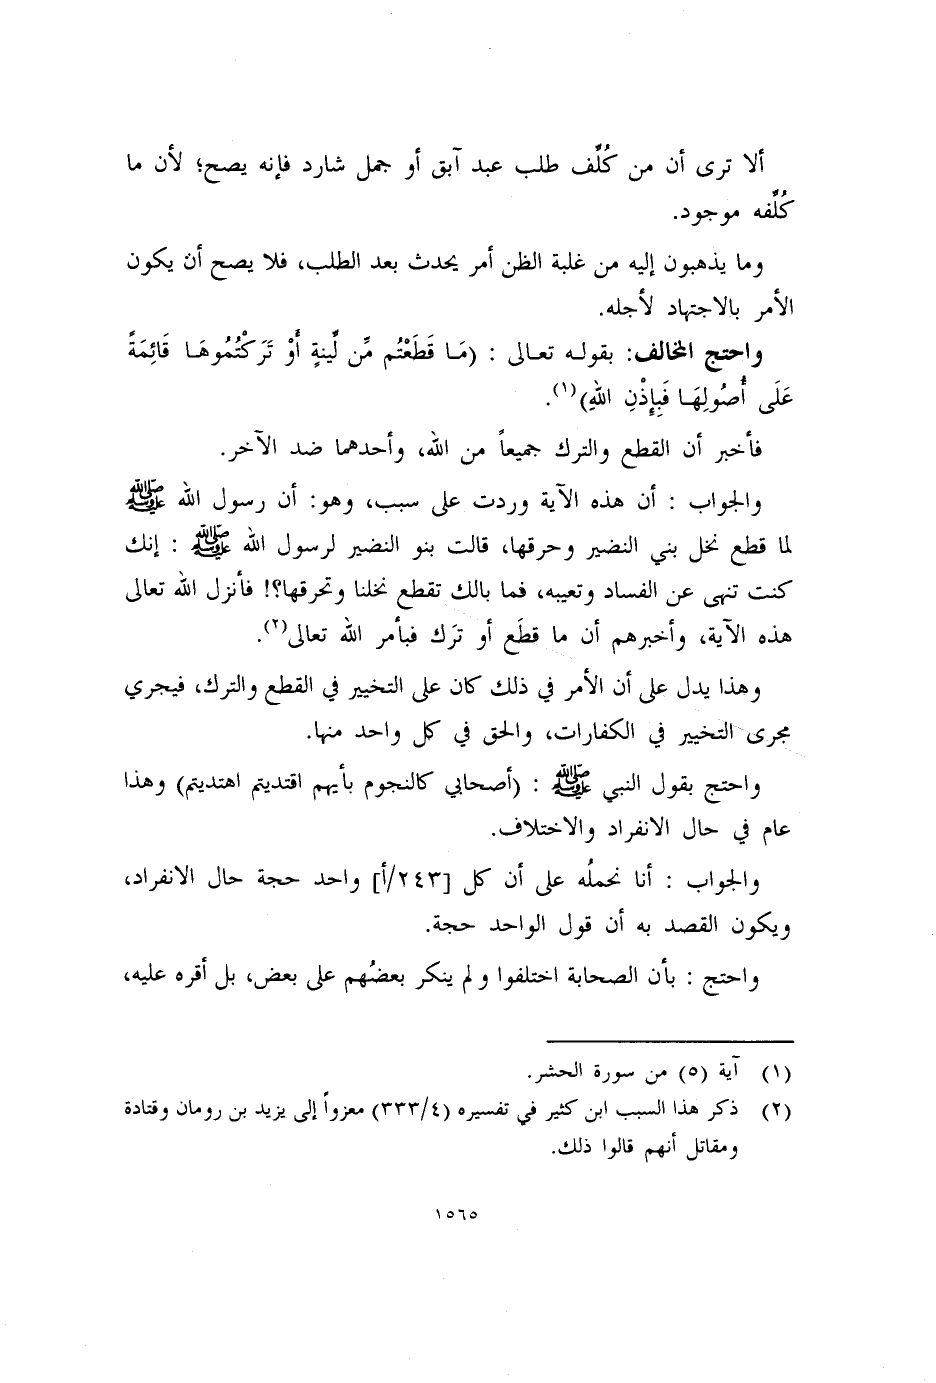 ألا ترى أن من كُلِّف طلب عبد آبق أو جمل شارد فإنه يصح؛ لأن ما
كُلِّفه موجود.
وما يذهبون إليه من غلبة الظن أمر يحدث بعد الطلب، فلا يصح أن يكون
الأمر بالاجتهاد لأجله.
واحتج المخالف: بقوله تعالى : (مَا قَطَعْتُم مِّن لِّينةٍ أَوْ تَرَكْتُمُوهَا قَائِمَةً
عَلَى أُصُولِهَا فَبِإِذْنِ اللهِ)(١).
فأخبر أن القطع والترك جميعاً من الله، وأحدهما ضد الآخر.
والجواب : أن هذه الآية وردت على سبب، وهو: أن رسول الله ﷺ
لما قطع نخل بني النضير وحرقها، قالت بنو النضير لرسول الله ﷺ : إنك
كنت تنهى عن الفساد وتعيبه، فما بالك تقطع نخلنا وتحرقها؟! فأنزل الله تعالى
هذه الآية، وأخبرهم أن ما قطَع أو ترَك فبأمر الله تعالى(٢).
وهذا يدل على أن الأمر في ذلك كان على التخيير في القطع والترك، فيجري
مجرى التخيير في الكفارات، والحق في كل واحد منها.
واحتج بقول النبي ﷺ : (أصحابي كالنجوم بأيهم اقتديتم اهتديتم) وهذا
عام في حال الانفراد والاختلاف.
والجواب : أنا نحملُه على أن كل [٢٤٣/أ] واحد حجة حال الانفراد،
ويكون القصد به أن قول الواحد حجة.
واحتج : بأن الصحابة اختلفوا ولم ينكر بعضُهم على بعض، بل أقره عليه،
(١) آية (٥) من سورة الحشر.
(٢) ذكر هذا السبب ابن كثير في تفسيره (٣٣٣/٤) معزواً إلى يزيد بن رومان وقتادة
ومقاتل أنهم قالوا ذلك.
١٥٦٥